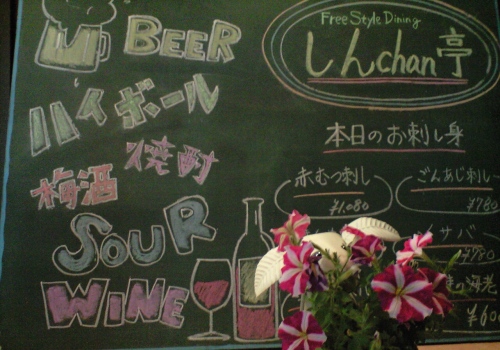 BEER
ハイボール
焼酎
梅酒
SOUR
WINE
Free Style Dining
しんchan亭
本日のお刺し身
赤むつ刺し
¥1,080
ごんあじ刺し
¥780
サバ
¥780
海老
¥600